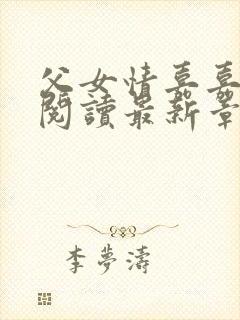 父女情嘉嘉
閱讀最新章
李夢濤